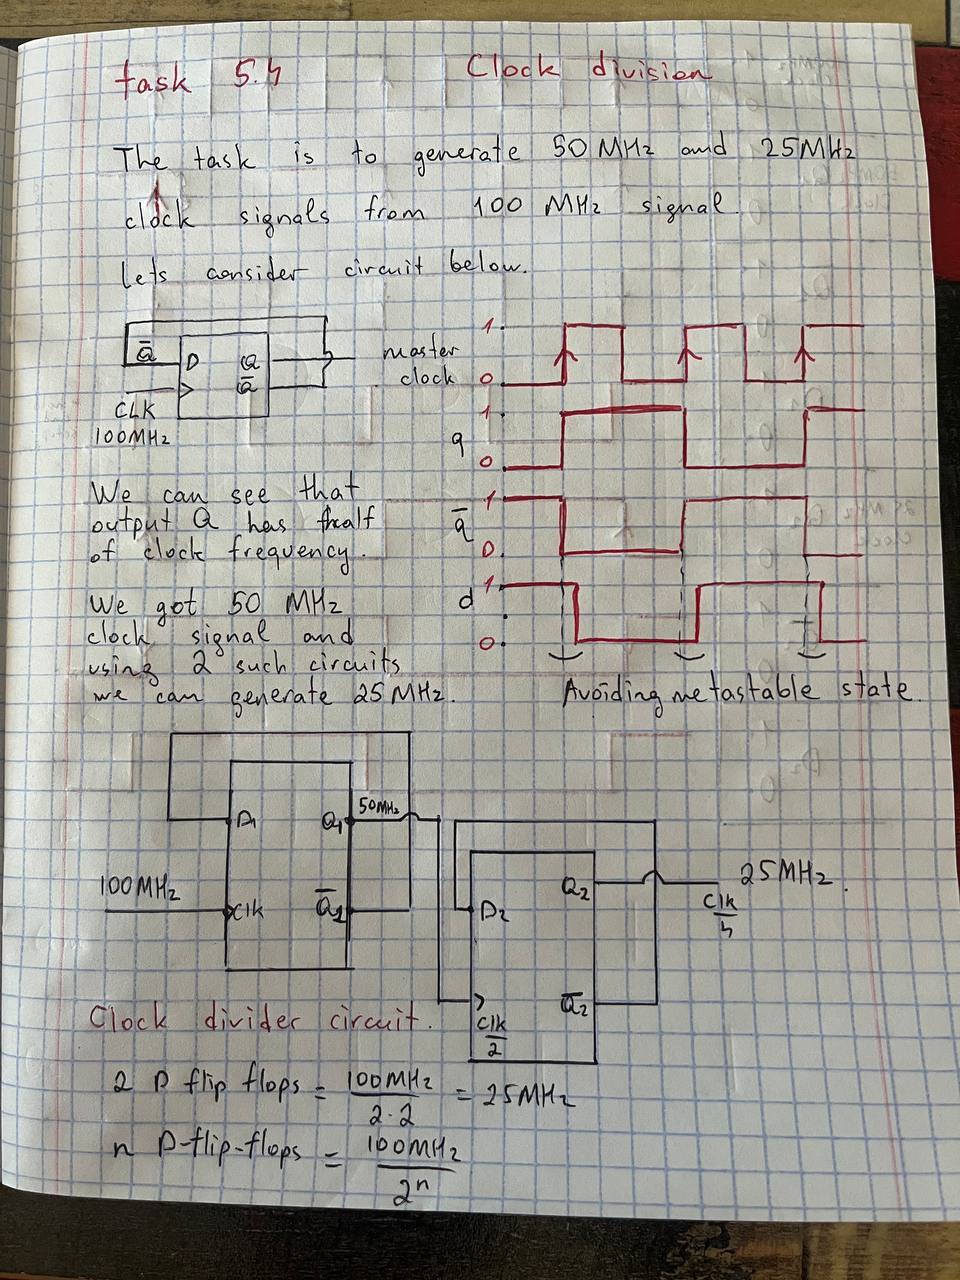 task 5.4 Clock division
The task is to generate 50 MHz and 25MHz
clock signals from 100 MHz signal.
Lets consider circuit below.
Q̅ D Q
Q̅
CLK
100MHz
master
clock
1
0
q
1
0
q̅
1
0
d
1
0
We can see that
output Q has half
of clock frequency.
We got 50 MHz
clock signal and
using 2 such circuits
we can generate 25MHz.
Avoiding metastable state.
D1 Q1 50MHz
100MHz
Clk Q̅1
D2 Q2 25MHz.
Clk/4
Q̅2
Clk/2
Clock divider circuit.
2 D flip flops = 100MHz/2·2 = 25MHz
n D-flip-flops = 100MHz/2ⁿ